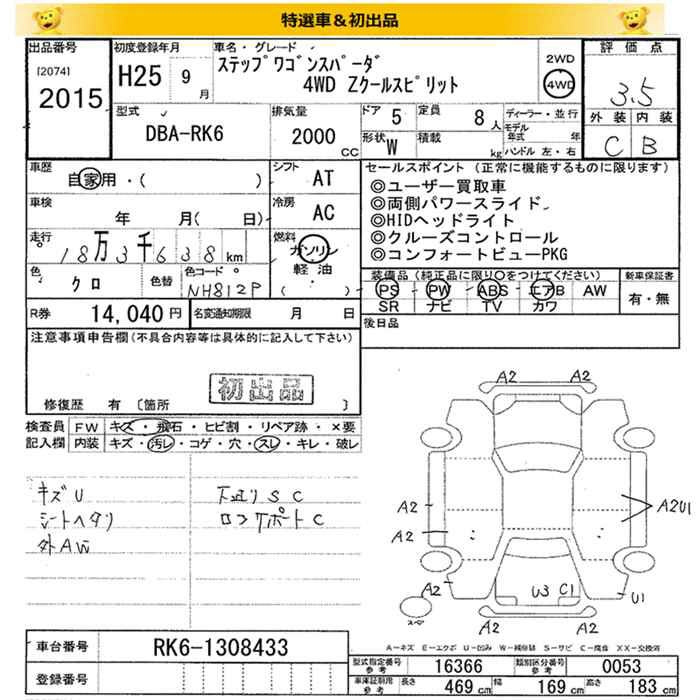 特選車＆初出品
出品番号 初度登録年月 車名・グレード 評価点
[2074] 2015 H25 9月 ステップワゴンスパーダ 2WD
4WD Zクールスピリット 4WD 3.5
型式 排気量 ドア 5 定員 8人 ディーラー・並行 外装 内装
DBA-RK6 2000CC 形状 W 積載 kg モデル年式 年 ハンドル 左・右 C B
車歴 自家用・( ) シフト AT セールスポイント (正常に機能するものに限ります)
◎ユーザー買取車
車検 年 月( 日) 冷房 AC ◎両側パワースライド
◎HIDヘッドライト
走行 18万3千638km 燃料 ガソリン ◎クルーズコントロール
軽油 ( ) ◎コンフォートビューPKG
色 クロ 色替 色コード NH812P 装備品 (純正品に限り○をつけてください) 新車保証書
PS PW ABS エアB AW 有・無
SR ナビ TV カワ
R券 14,040円 名変通知期限 月 日 後日品
注意事項申告欄(不具合内容等は具体的に記入して下さい)
初出品
修復歴 有 〔箇所 〕
検査員 FW キズ・飛石・ヒビ割・リペア跡・×要
記入欄 内装 キズ・汚レ・コゲ・穴・スレ・キレ・破レ
キズU 下廻りSC
シートヘタリ ロアサポートC
外AW
A2 A2
A2 A2U1
A2
A2 U3 C1 U1
スペア A2 A2
A-キズ E-エクボ U-凹み W-補修跡 S-サビ C-腐食 XX-交換済
車台番号 RK6-1308433
登録番号
型式指定番号 参考 16366 類別区分番号 参考 0053
車庫証明用 参考 長さ 469cm 幅 169cm 高さ 183cm